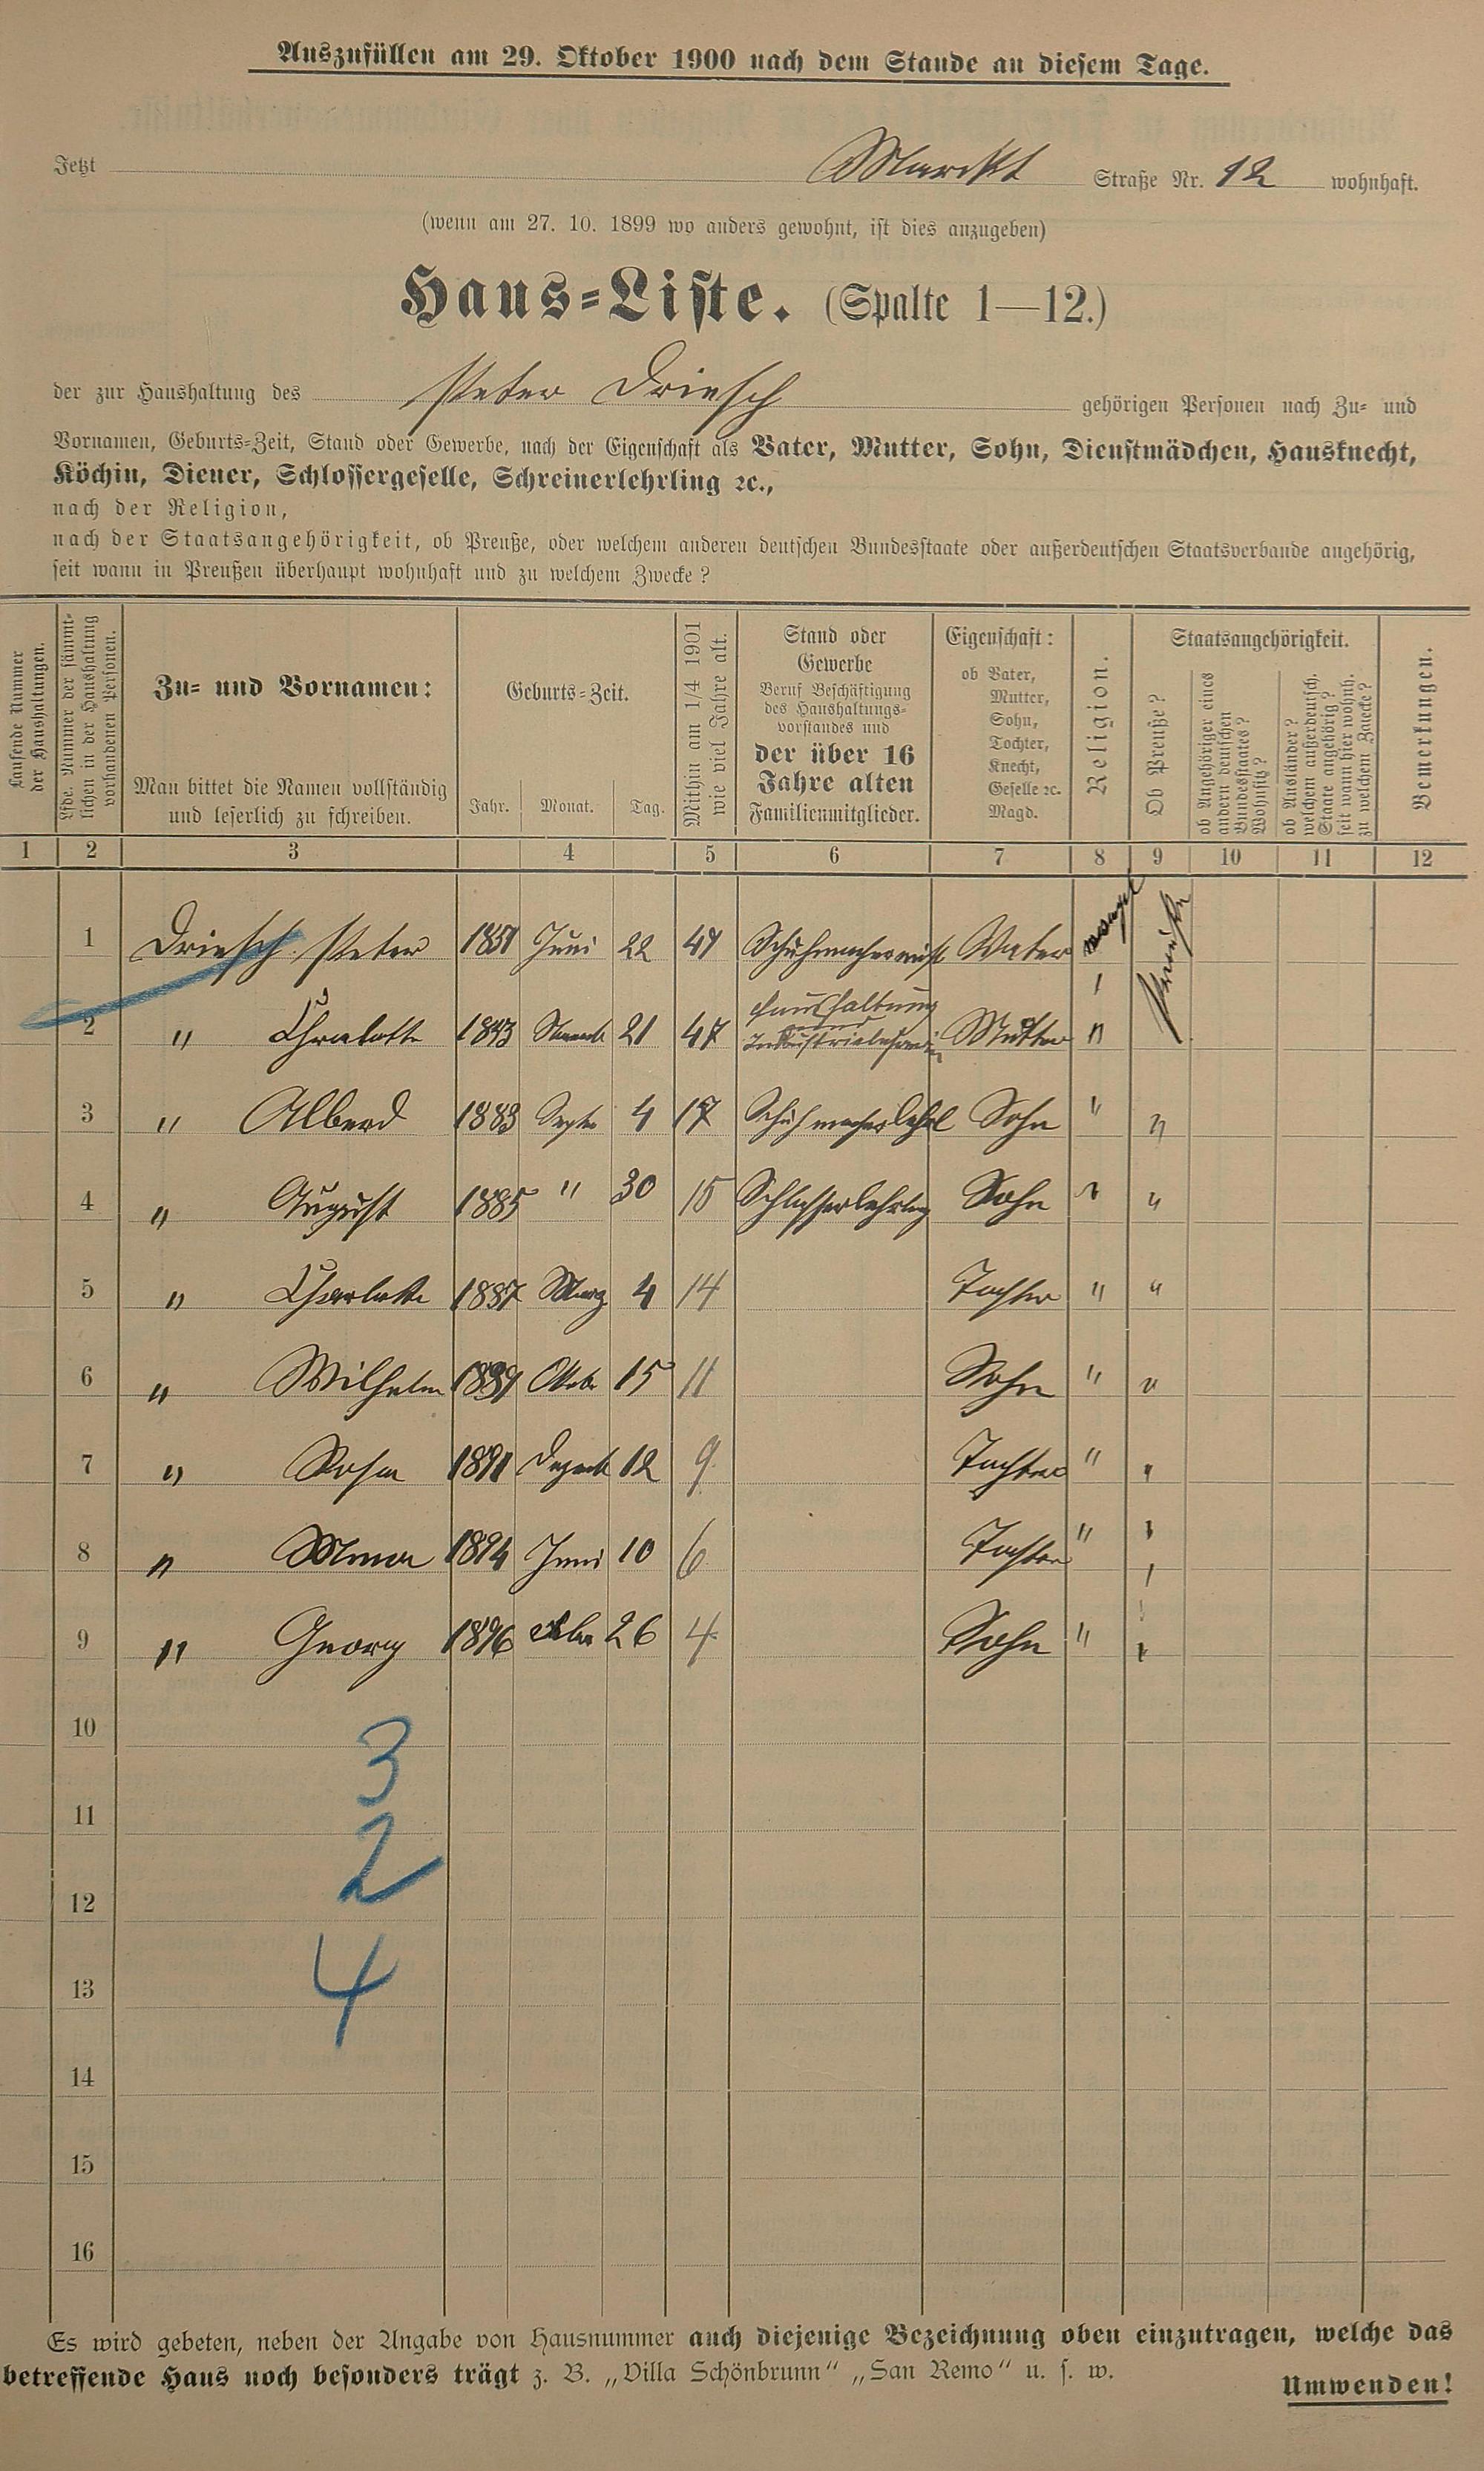 Auszufüllen am 29. Oktober 1900 nach dem Stande an diesem Tage.
Jetzt Markt Straße Nr. 12 wohnhaft.
(wenn am 27. 10. 1899 wo anders gewohnt, ist dies anzugeben)
Haus=Liste. (Spalte 1—12.)
der zur Haushaltung des Peter Driesch gehörigen Personen nach Zu= und
Vornamen, Geburts=Zeit, Stand oder Gewerbe, nach der Eigenschaft als Vater, Mutter, Sohn, Dienstmädchen, Hausknecht,
Köchin, Diener, Schlossergeselle, Schreinerlehrling ꝛc.,
nach der Religion,
nach der Staatsangehörigkeit, ob Preuße, oder welchem anderen deutschen Bundesstaate oder außerdeutschen Staatsverbande angehörig,
seit wann in Preußen überhaupt wohnhaft und zu welchem Zwecke?
Laufende Nummer
der Haushaltungen.
Lfde. Nummer der sämmt=
lichen in der Haushaltung
vorhandenen Personen.
Zu= und Vornamen:
Man bittet die Namen vollständig
und leserlich zu schreiben.
Geburts=Zeit.
Jahr. Monat. Tag.
Mithin am 1/4 1901
wie viel Jahre alt.
Stand oder
Gewerbe
Beruf Beschäftigung
des Haushaltungs=
vorstandes und
der über 16
Jahre alten
Familienmitglieder.
Eigenschaft:
ob Vater,
Mutter,
Sohn,
Tochter,
Knecht,
Geselle ꝛc.
Magd.
Religion.
Staatsangehörigkeit.
Ob Preuße?
ob Angehöriger eines
andern deutschen
Bundesstaates?
Wohnsitz?
ob Ausländer?
welchem außerdeutsch.
Staate angehörig?
seit wann hier wohnh.
zu welchem Zwecke?
Bemerkungen.
1 2 3 4 5 6 7 8 9 10 11 12
1 Driesch Peter Juni 22 Schuhmachermist Vater evangl Preuße
2 " Charlotte 21 47 Haushaltung und Industrielehrerin Mutter "
3 " Alberd 1883 Septe 4 17 Schuhmacherlehrl Sohn " "
4 " August 1885 " 30 15 Schlosserlehrlng Sohn " "
5 " Charlotte 1887 März 4 14 Tochter " "
6 " Wilhelm 1889 Oktob 15 11 Sohn " "
7 " Rosa 1891 Dezemb 12 9 Tochter " "
8 " 1894 Juni 10 6 Tochter " "
9 " Georg 1896 26 4 Sohn " "
10
3
11
2
12
13
4
14
15
16
Es wird gebeten, neben der Angabe von Hausnummer auch diejenige Bezeichnung oben einzutragen, welche das
betreffende Haus noch besonders trägt z. B. „Villa Schönbrunn“ „San Remo“ u. s. w.
Umwenden!